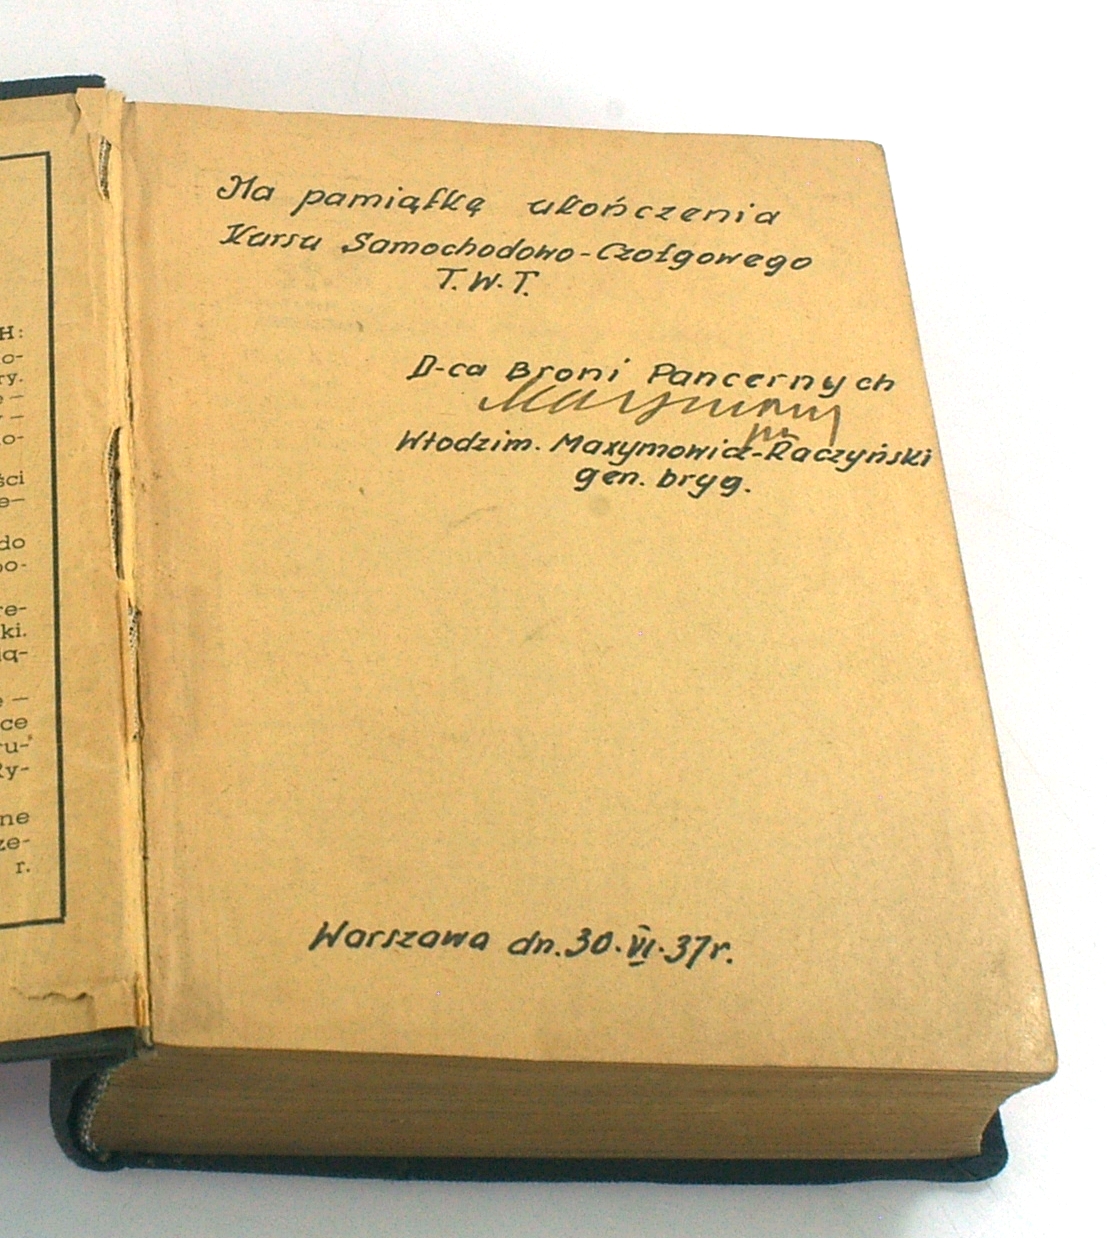 H:
o-
ry.
e —
—
o-
ści
e—
do
po-
re-
ki.
ią-
e —
ce
ru-
Ry-
ne
ze-
r.
Na pamiątkę ukończenia
Kursu Samochodowo-Czołgowego
T.W.T.
D-ca Broni Pancernych
Włodzim. Maxymowicz-Raczyński
gen. bryg.
Warszawa dn. 30.VI.37r.